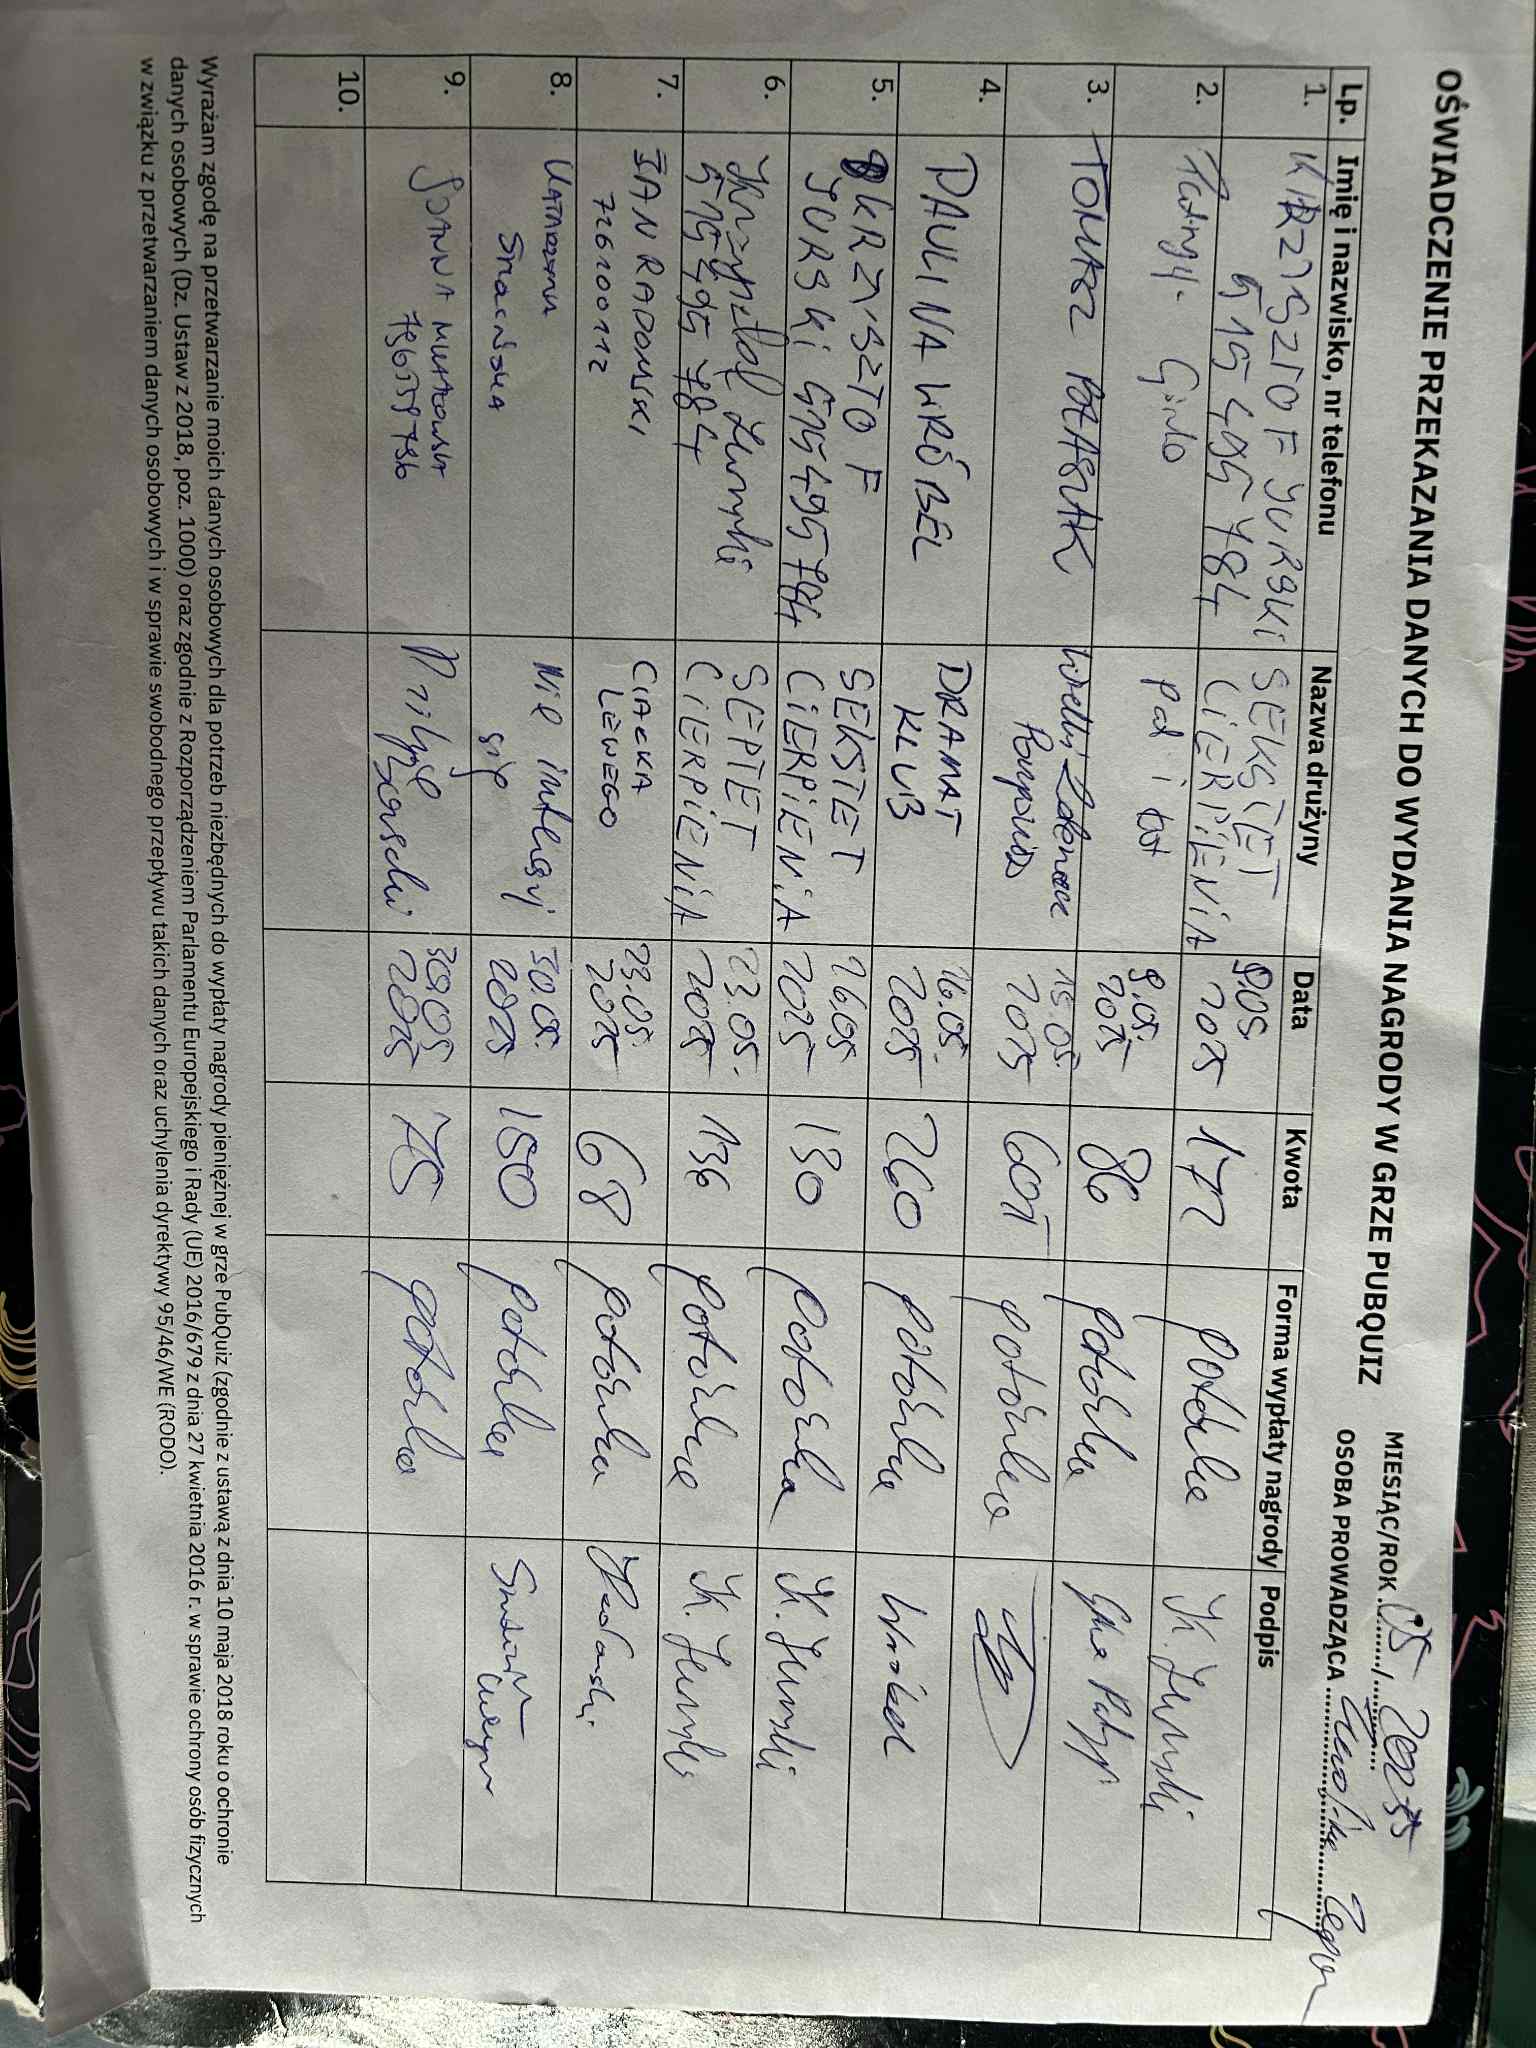 OŚWIADCZENIE PRZEKAZANIA DANYCH DO WYDANIA NAGRODY W GRZE PUBQUIZ
MIESIĄC/ROK 05 / 2025
OSOBA PROWADZĄCA
Lp. Imię i nazwisko, nr telefonu Nazwa drużyny Data Kwota Forma wypłaty nagrody Podpis
1. KRZYSZTOF JURSKI SEKSTET 9.05. 172 gotówka K. Jurski
515 495 784 CIERPIENIA 2025
2. Pat i kot 9.05. 86 gotówka
2025
3. TOMASZ 15.05. 605 gotówka
2025
4. PAULINA WRÓBEL DRAMAT 16.05. 260 gotówka Wróbel
KLUB 2025
5. KRZYSZTOF SEKSTET 16.05 130 gotówka K. Jurski
JURSKI 515 495 784 CIERPIENIA 2025
6. Krzysztof Jurski SEPTET 23.05. 136 gotówka K. Jurski
515 495 784 CIERPIENIA 2025
7. JAN RADOMSKI CIACKA 23.05. 68 gotówka
726100112 LEWEGO 2025
8. KATARZYNA Nie interesuj 30.05. 150 gotówka
się 2025
9. JOANNA 30.05 75 gotówka
2025
10.
Wyrażam zgodę na przetwarzanie moich danych osobowych dla potrzeb niezbędnych do wypłaty nagrody pieniężnej w grze PubQuiz (zgodnie z ustawą z dnia 10 maja 2018 roku o ochronie
danych osobowych (Dz. Ustaw z 2018, poz. 1000) oraz zgodnie z Rozporządzeniem Parlamentu Europejskiego i Rady (UE) 2016/679 z dnia 27 kwietnia 2016 r. w sprawie ochrony osób fizycznych
w związku z przetwarzaniem danych osobowych i w sprawie swobodnego przepływu takich danych oraz uchylenia dyrektywy 95/46/WE (RODO).